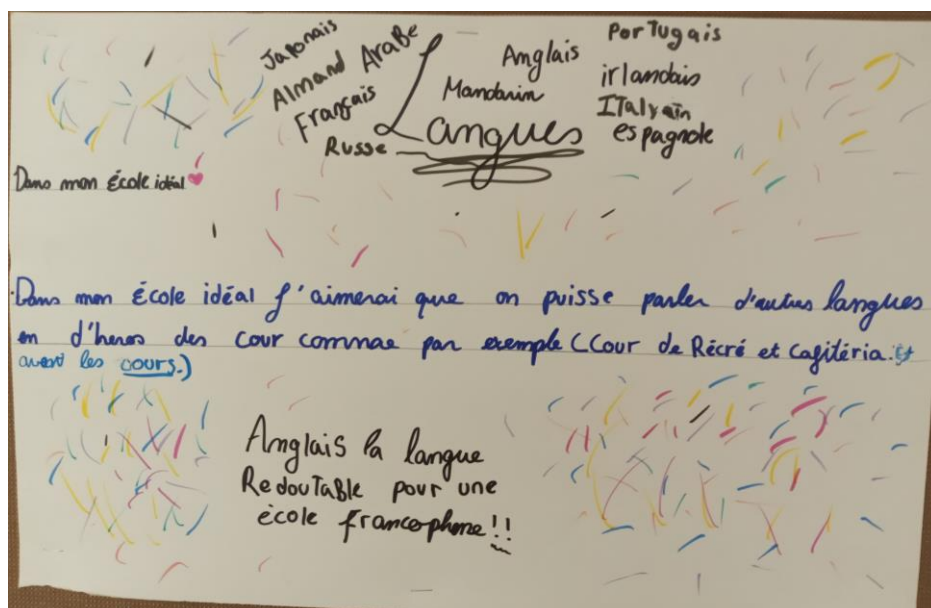 Japonais
Almand Arabe
Français
Russe
Anglais
Mandarin
Langues
Portugais
irlandais
Italyaïn
espagnole
Dans mon École idéal
Dans mon École idéal j'aimerai que on puisse parler d'autres langues
en d'heros des cour commae par exemple (Cour de Récré et Cafitéria et
avant les cours.)
Anglais la langue
Redoutable pour une
école francophone!!